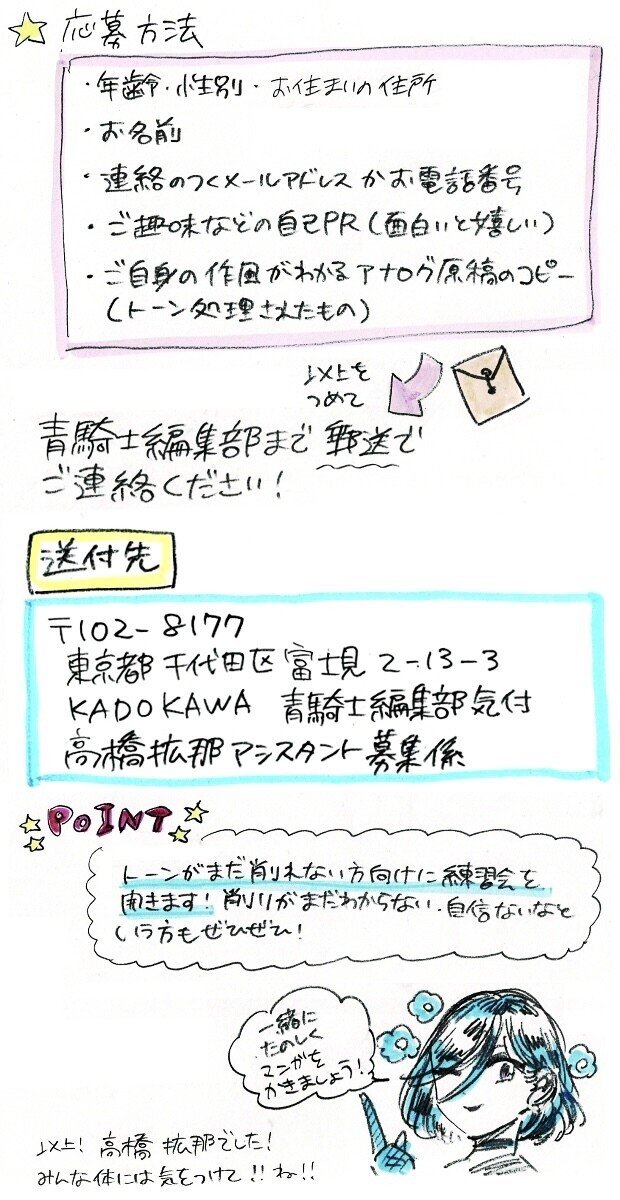 応募方法
・年齢・性別・お住まいの住所
・お名前
・連絡のつくメールアドレスかお電話番号
・ご趣味などの自己PR(面白いと嬉しい)
・ご自身の作風がわかるアナログ原稿のコピー
(トーン処理されたもの)
以上を
つめて
青騎士編集部まで郵送で
ご連絡ください!
送付先
〒102-8177
東京都千代田区富士見2-13-3
KADOKAWA 青騎士編集部気付
高橋拡那アシスタント募集係
POINT
トーンがまだ削れない方向けに練習会を
開きます!削りがまだわからない、自信ないなと
いう方もぜひぜひ!
一緒に
たのしく
マンガを
かきましょう!
以上!高橋拡那でした!
みんな体には気をつけて!!ね!!